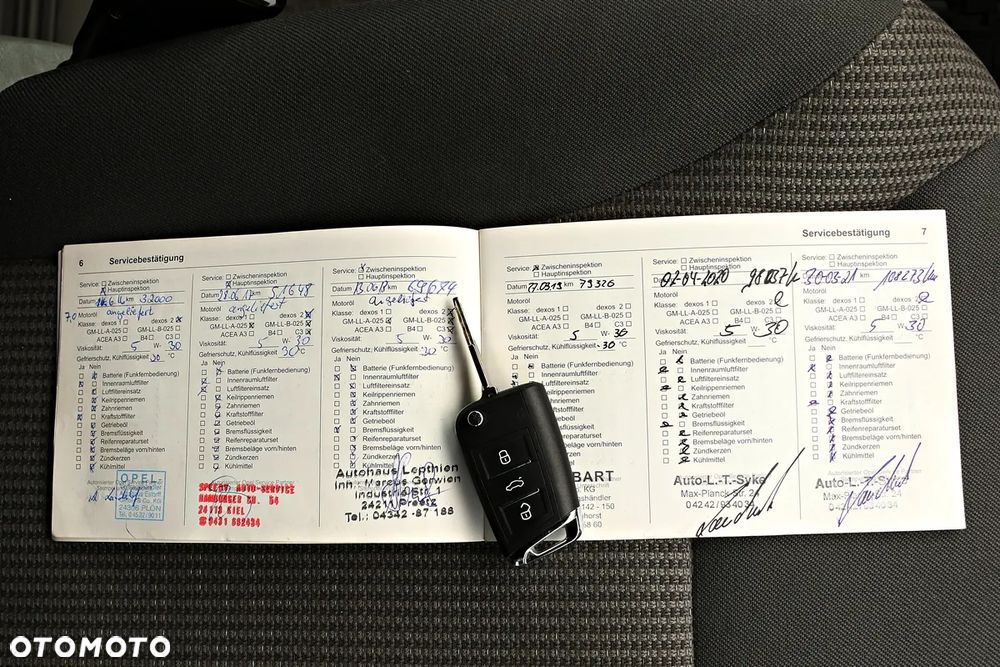 6 Servicebestätigung
Service: Zwischeninspektion
Hauptinspektion
Datum km 32000
Motoröl angeliefert
7,0
Klasse: dexos 1 dexos 2
GM-LL-A-025 GM-LL-B-025
ACEA A3 B4 C3
Viskosität: 5 W- 30
Gefrierschutz, Kühlflüssigkeit 30 °C
Ja Nein
Batterie (Funkfernbedienung)
Innenraumluftfilter
Luftfiltereinsatz
Keilrippenriemen
Zahnriemen
Kraftstofffilter
Getriebeöl
Bremsflüssigkeit
Reifenreparaturset
Bremsbeläge vorn/hinten
Zündkerzen
Kühlmittel
OPEL
24306 PLÖN
Service: Zwischeninspektion
Hauptinspektion
Datum km 51648
Motoröl angeliefert
Klasse: dexos 1 dexos 2
GM-LL-A-025 GM-LL-B-025
ACEA A3 B4 C3
Viskosität: 5 W- 30
Gefrierschutz, Kühlflüssigkeit 30 °C
Ja Nein
Batterie (Funkfernbedienung)
Innenraumluftfilter
Luftfiltereinsatz
Keilrippenriemen
Zahnriemen
Kraftstofffilter
Getriebeöl
Bremsflüssigkeit
Reifenreparaturset
Bremsbeläge vorn/hinten
Zündkerzen
Kühlmittel
SPECHT AUTO-SERVICE
HAMBURGER CH. 54
24113 KIEL
0431 682434
Service: Zwischeninspektion
Hauptinspektion
Datum 13.06.18 km
Motoröl angeliefert
Klasse: dexos 1 dexos 2
GM-LL-A-025 GM-LL-B-025
ACEA A3 B4 C3
Viskosität: 5 W- 30
Gefrierschutz, Kühlflüssigkeit 30 °C
Ja Nein
Batterie (Funkfernbedienung)
Innenraumluftfilter
Luftfiltereinsatz
Keilrippenriemen
Zahnriemen
Kraftstofffilter
Getriebeöl
Bremsflüssigkeit
Reifenreparaturset
Bremsbeläge vorn/hinten
Zündkerzen
Kühlmittel
Autohaus Lepthien
Inh. Marcus Gerwien
Industriestr. 1
24211 Preetz
Tel.: 04342 - 87 188
Servicebestätigung 7
Service: Zwischeninspektion
Hauptinspektion
Datum km 73326
Motoröl
Klasse: dexos 1 dexos 2
GM-LL-A-025 GM-LL-B-025
ACEA A3 B4 C3
Viskosität: 5 W- 30
Gefrierschutz, Kühlflüssigkeit -30 °C
Ja Nein
Batterie (Funkfernbedienung)
Innenraumluftfilter
Luftfiltereinsatz
Keilrippenriemen
Zahnriemen
Kraftstofffilter
Getriebeöl
Bremsflüssigkeit
Reifenreparaturset
Bremsbeläge vorn/hinten
BART
KG
142 - 150
Service: Zwischeninspektion
Hauptinspektion
02-04-2020
Motoröl
Klasse: dexos 1 dexos 2
GM-LL-A-025 GM-LL-B-025
ACEA A3 B4 C3
Viskosität: 5 W- 30
Gefrierschutz, Kühlflüssigkeit °C
Ja Nein
Batterie (Funkfernbedienung)
Innenraumluftfilter
Luftfiltereinsatz
Keilrippenriemen
Zahnriemen
Kraftstofffilter
Getriebeöl
Bremsflüssigkeit
Reifenreparaturset
Bremsbeläge vorn/hinten
Zündkerzen
Kühlmittel
Auto-L.-T.-Syke
Max-Planck-Str. 24
04242 / 93 40 34
Service: Zwischeninspektion
Hauptinspektion
30-03-21
Motoröl
Klasse: dexos 1 dexos 2
GM-LL-A-025 GM-LL-B-025
ACEA A3 B4 C3
Viskosität: 5 W- 30
Gefrierschutz, Kühlflüssigkeit °C
Ja Nein
Batterie (Funkfernbedienung)
Innenraumluftfilter
Luftfiltereinsatz
Keilrippenriemen
Zahnriemen
Kraftstofffilter
Getriebeöl
Bremsflüssigkeit
Reifenreparaturset
Bremsbeläge vorn/hinten
Zündkerzen
Kühlmittel
Auto-L.-T.-Syke
OTOMOTO